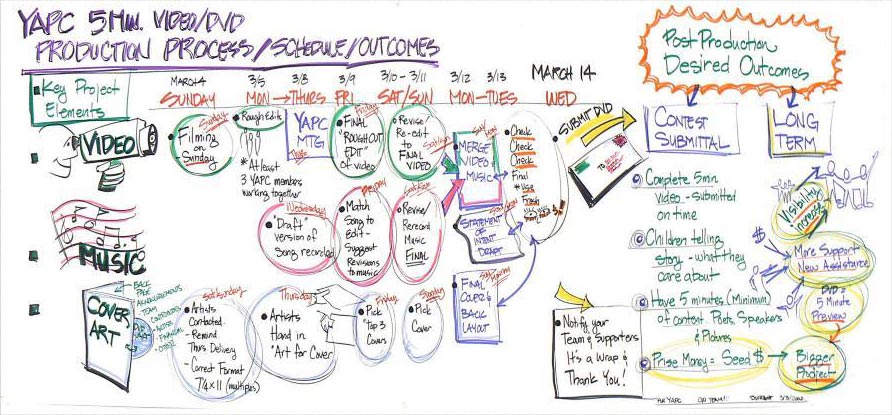 YAPC 5 MIN. VIDEO/DVD
PRODUCTION PROCESS/SCHEDULE/OUTCOMES
Post Production
Desired Outcomes
Key Project
Elements
MARCH 4
SUNDAY
3/5
MON →
3/8
THURS
3/9
FRI
3/10 - 3/11
SAT/SUN
3/12
MON -
3/13
TUES
MARCH 14
WED
CONTEST
SUBMITTAL
LONG
TERM
VIDEO
Sunday
Filming
on
Sunday
Rough Edit
* At least
3 YAPC members
working together
YAPC
MTG
Thurs
Friday
FINAL
"ROUGH CUT
EDIT"
of video
Revise/
Re-edit
to
FINAL
VIDEO
Sat/Sun
MERGE
VIDEO
MUSIC
Check
Check
Check
Final
SUBMIT DVD
MUSIC
Wednesday
"Draft"
version of
Song recorded
Match
Song to
Edit -
Suggest
Revisions
to music
Sat/Sun
Revise/
Rerecord
Music
FINAL
STATEMENT
OF
INTENT
DRAFT
COVER
ART
BACK
PAGE
ACKNOWLEDGEMENTS
TEAM
Sat/Sunday
Artists
Contacted.
- Remind
Thurs Delivery
- Correct Format
Thursday
Artists
Hand in
"Art for Cover"
Friday
Pick
"Top 3
Covers
Sunday
Pick
Cover
FINAL
COVER &
BACK
LAYOUT
Notify your
Team & Supporters
It's a Wrap &
Thank You!
Complete 5min
video - submitted
on time
Children telling
story - what they
care about
Have 5 minutes (Minimum)
of content Poets, Speakers
& Pictures
Prise Money = Seed $
Visibility
increase
$
More Support
New Assistance
DVD =
5 Minute
Preview
Bigger
Project